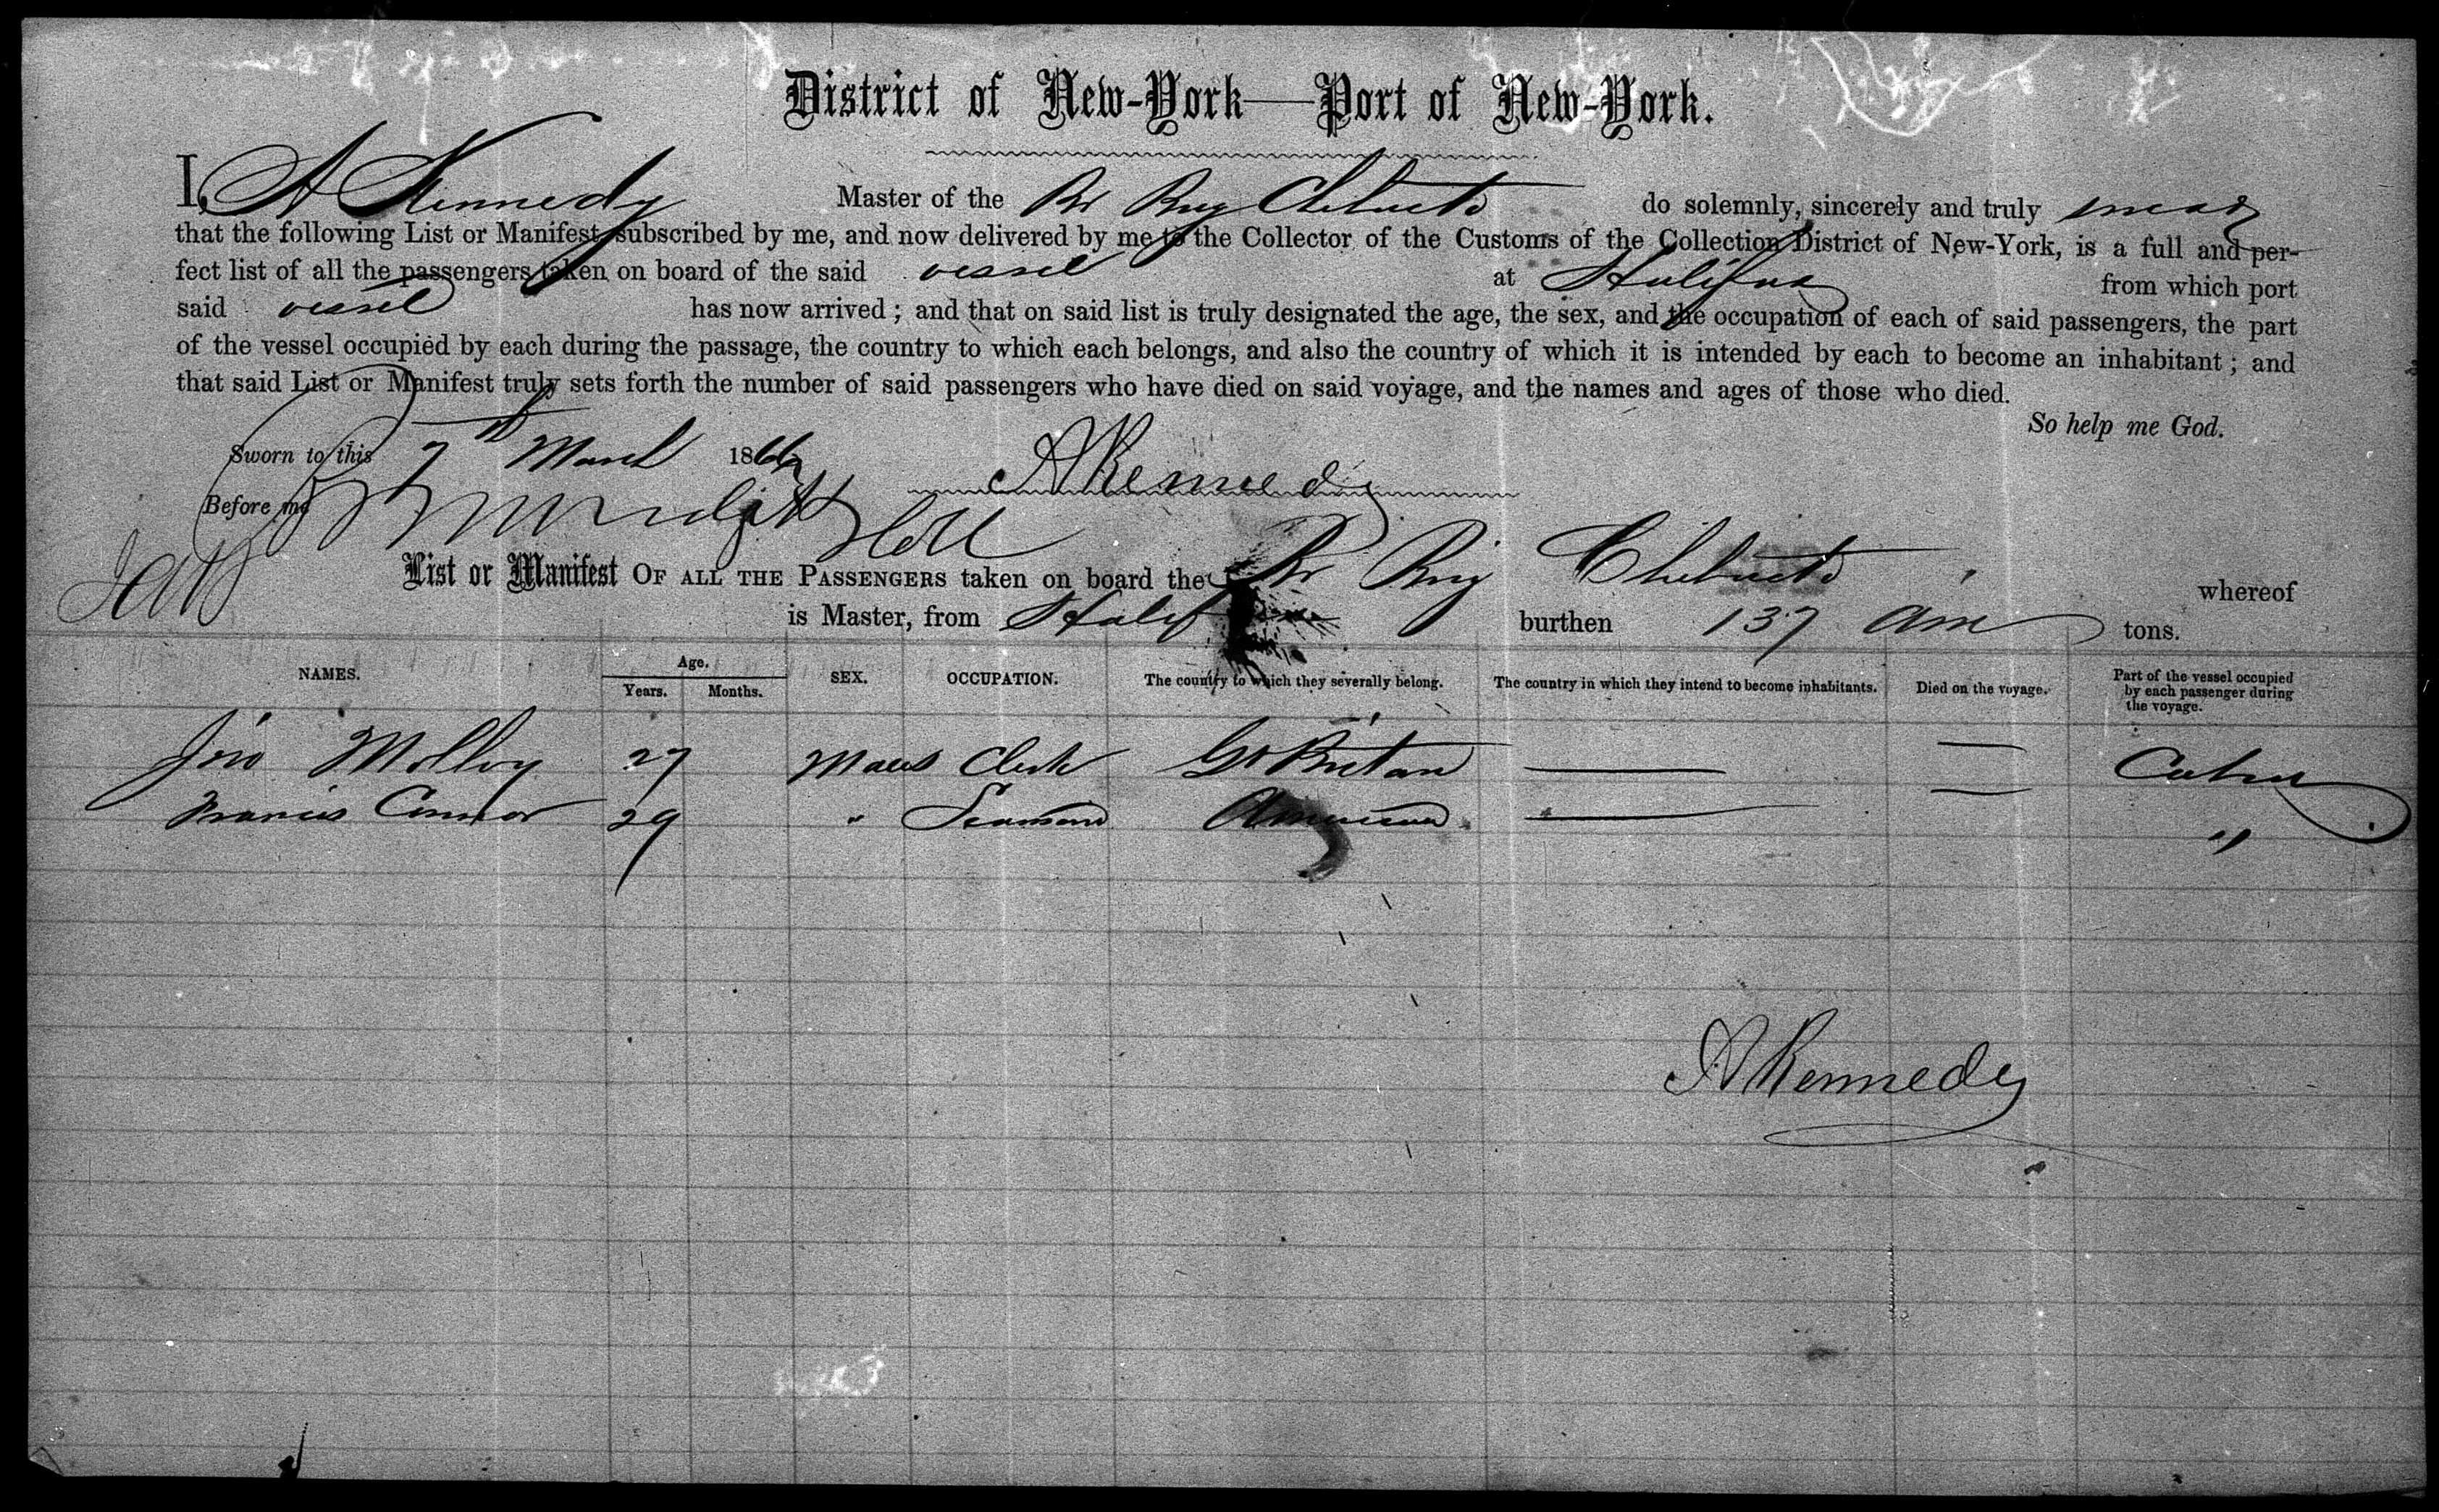 District of New-York—Port of New-York.
I, A Kennedy Master of the Br Brig Chebucto do solemnly, sincerely and truly swear
that the following List or Manifest, subscribed by me, and now delivered by me to the Collector of the Customs of the Collection District of New-York, is a full and per-
fect list of all the passengers taken on board of the said vessel at Halifax from which port
said vessel has now arrived; and that on said list is truly designated the age, the sex, and the occupation of each of said passengers, the part
of the vessel occupied by each during the passage, the country to which each belongs, and also the country of which it is intended by each to become an inhabitant; and
that said List or Manifest truly sets forth the number of said passengers who have died on said voyage, and the names and ages of those who died.
So help me God.
Sworn to this 7th March 186
A Kennedy
Before me
List or Manifest OF ALL THE PASSENGERS taken on board the Br Brig Chebucto whereof
is Master, from Halifax burthen 137 tons.
NAMES. Age. Years. Months. SEX. OCCUPATION. The country to which they severally belong. The country in which they intend to become inhabitants. Died on the voyage. Part of the vessel occupied by each passenger during the voyage.
Jno Molloy 27 Males Clerk Gt Britan — — Cabin
Francis Connor 29 " Seaman American — — "
A Kennedy